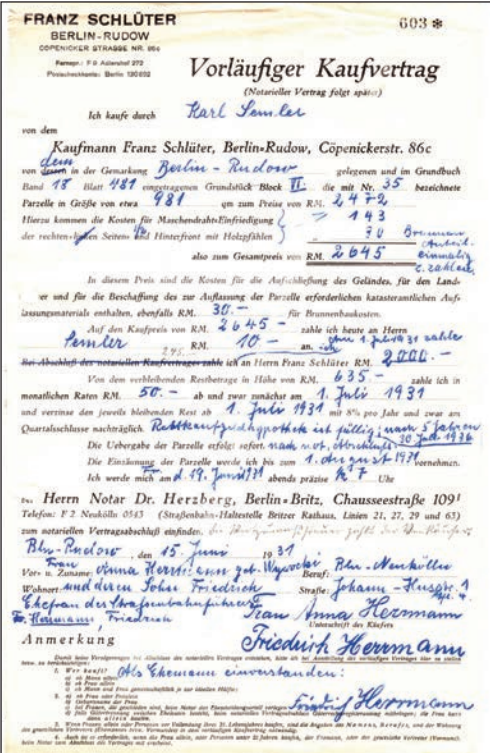 FRANZ SCHLÜTER
BERLIN-RUDOW
COPENICKER STRASSE NR. 86c
Fernspr.: F 0 Adlershof 272
Postscheckkonto: Berlin 130602
603 *
Vorläufiger Kaufvertrag
(Notarieller Vertrag folgt später)
Ich kaufe durch Karl Semler
von dem
Kaufmann Franz Schlüter, Berlin-Rudow, Cöpenickerstr. 86c
dem
von dessen in der Gemarkung Berlin-Rudow gelegenen und im Grundbuch
Band 18 Blatt 481 eingetragenen Grundstück Block II. die mit Nr. 35 bezeichnete
Parzelle in Größe von etwa 981 qm zum Preise von RM. 2472
Hierzu kommen die Kosten für Maschendraht-Einfriedigung 143
der rechten- Seiten- und Hinterfront mit Holzpfählen 30 Brunnen
also zum Gesamtpreise von RM. 2645 Anteil einmalig z. zahlen
In diesem Preis sind die Kosten für die Aufschließung des Geländes, für den Land-
und für die Beschaffung des zur Auflassung der Parzelle erforderlichen katasteramtlichen Auf-
lassungsmaterials enthalten, ebenfalls RM. 30.- für Brunnenbaukosten.
Auf den Kaufpreis von RM. 2645- zahle ich heute an Herrn
Semler RM. 10- an. ich am 1. Juli 1931 zahle
Bei Abschluß des notariellen Kaufvertrages zahle ich an Herrn Franz Schlüter RM. 2000.-
Von dem verbleibenden Restbetrage in Höhe von RM. 635.- zahle ich in
monatlichen Raten RM. 50.- ab und zwar zunächst am 1. Juli 1931
und verzinse den jeweils bleibenden Rest ab 1. Juli 1931 mit 8% pro Jahr und zwar am
Quartalsschlusse nachträglich. Restkaufgeldhypothek ist fällig nach 5 Jahren
Die Uebergabe der Parzelle erfolgt sofort. nach not. Abschluß 30 Juli 1936
Die Einzäunung der Parzelle werde ich bis zum 1. August 1931 vornehmen.
Ich werde mich am d. 19. Juni 1931 abends präzise Uhr
Herrn Notar Dr. Herzberg, Berlin-Britz, Chausseestraße 109¹
Telefon: F 2 Neukölln 0543 (Straßenbahn-Haltestelle Britzer Rathaus, Linien 21, 27, 29 und 63)
zum notariellen Vertragsabschluß einfinden.
Bln-Rudow, den 15. Juni 1931
Frau
Vor- u. Zuname: Anna Herrmann geb. Beruf: Bln-Neukölln
Wohnort und deren Sohn Friedrich Straße: Johann-
Ehefrau des Straßenbahnführers Frau Anna Herrmann
Fr. Herrmann, Friedrich Unterschrift des Käufers
Friedrich Herrmann
Anmerkung
1. Wer kauft? Als Ehemann einverstanden:
a) ob Mann allein
b) ob Frau allein
Friedrich Herrmann